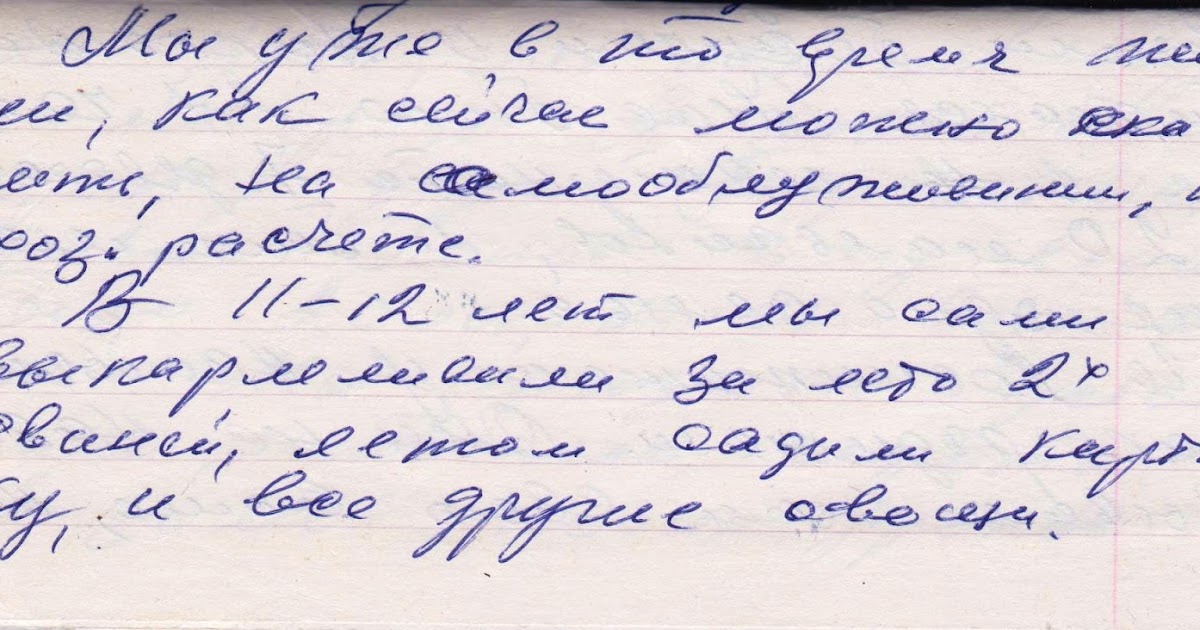 Мы уже в то время жи
ли, как сейчас можно ска
зать, на самообслуживании,
хоз. расчете.
В 11-12 лет мы сами
выкармливали за лето 2х
свиней, летом садили карт
у, и все другие овощи.